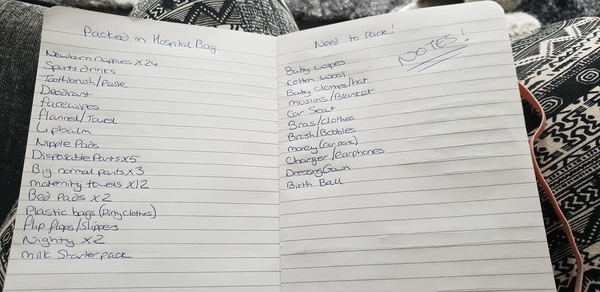 Packed in Hospital Bag
Newborn nappies x 24
Sports drinks
Toothbrush/paste
Deodrant
facewipes
flannel/Towel
Lipbalm
Nipple Pads
Disposable Pants x5
Big normal pants x 3
maternity towels x12
Bed Pads x 2
Plastic bags (Dirty clothes)
Flip flops/Slippers
Nighty x2
milk Starter pack
Need to pack!
NOTES!
Baby wipes
Cotton wool
Baby clothes/hat
muslins/Blanket
Car Seat
Bras/clothes
Brush/Bobbles
money (car park)
Charger/earphones
Dressing Gown
Birth Ball